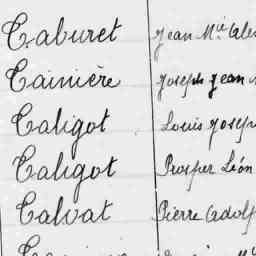 Taburet Jean Mie
Tainière Joseph Jean
Taligot Louis Joseph
Taligot Prosper Léon
Talvat Pierre Adolp